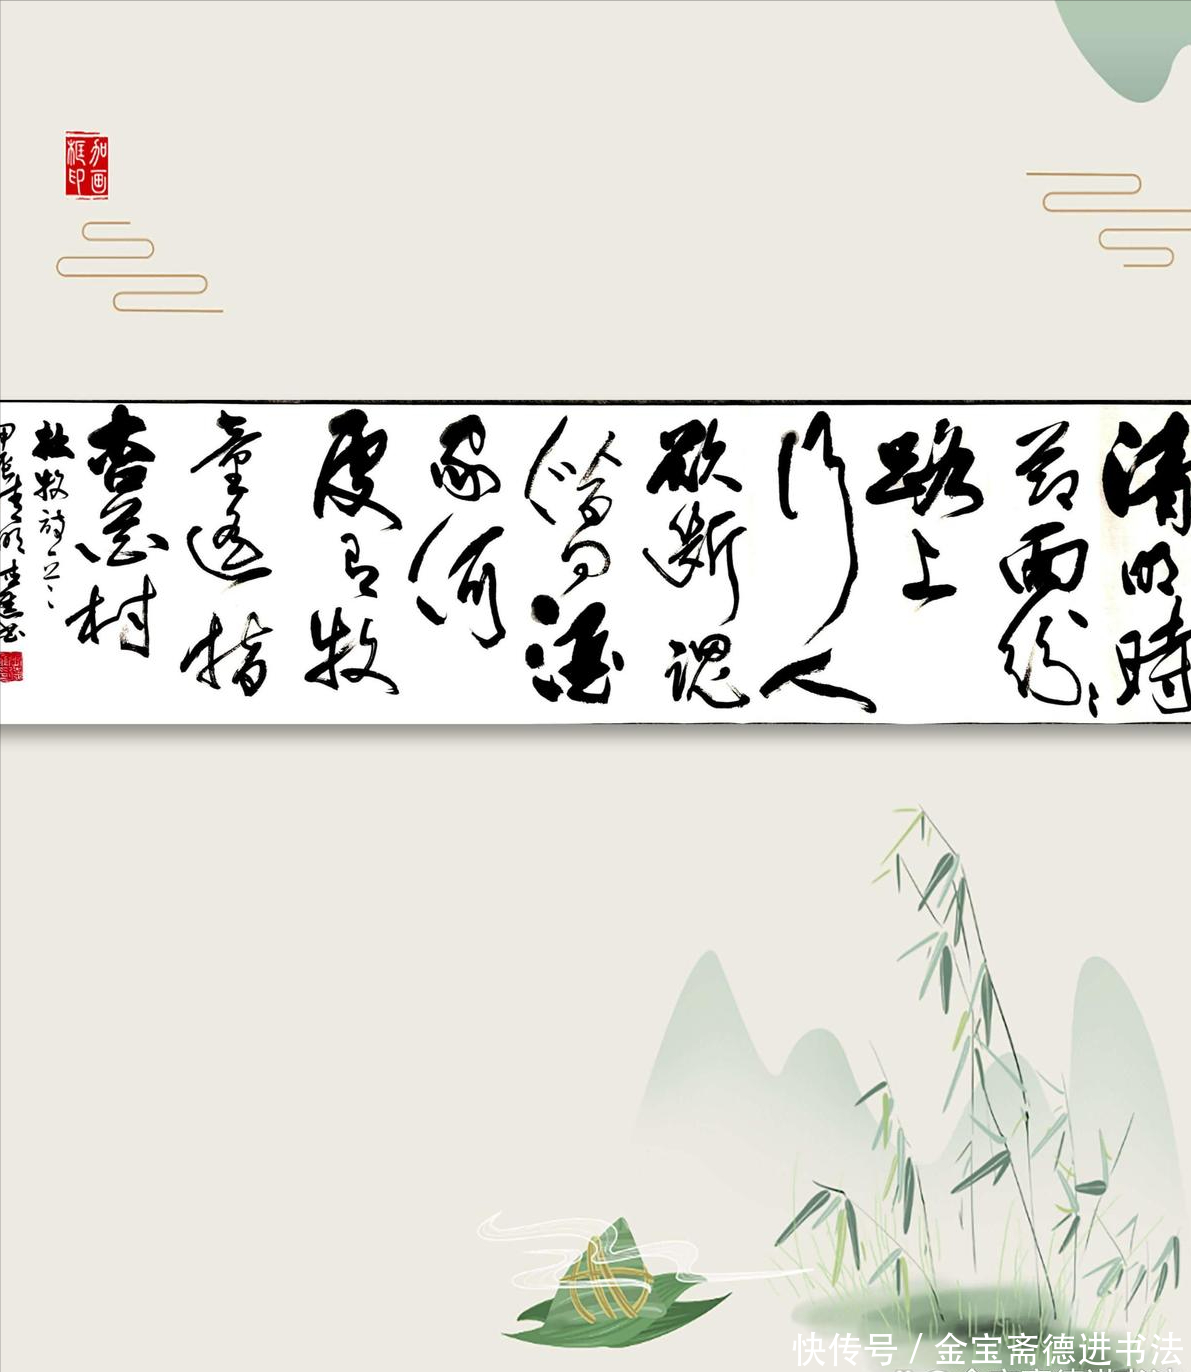 加画
框印
清明時
節雨紛〻
路上
行人
欲斷魂
借問酒
家何
處有牧
童遥指
杏花村
杜牧詩一首
甲辰清明書
快传号 / 金宝斋德进书法